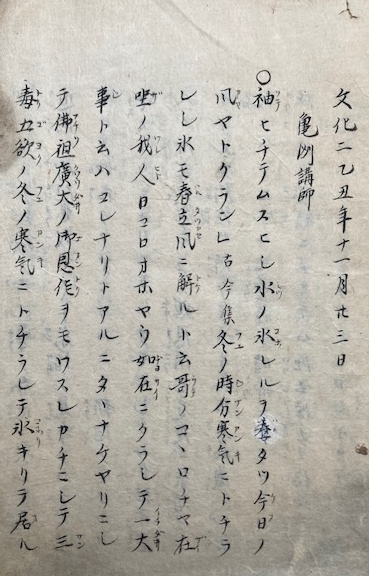 文化二乙丑年十一月廿三日
亀洲講師
〇袖ヒチテムスヒシ水ノ氷レルヲ春タツ今日ノ
風ヤトクラン」古今集冬ノ時分寒気ニトチラ
レシ氷モ春立風ニ解ルト云哥ノコヽロチヤ在
坐ノ我人日コロオホヤウ如在ニクラシテ一大
事ト云ハコレナリトアルニタヽナケヤリニシ
テ佛祖廣大ノ御恩徳ヲモワスレカチニシテ三
毒五欲ノ冬ノ寒気ニトチラレテ氷キリテ居ル